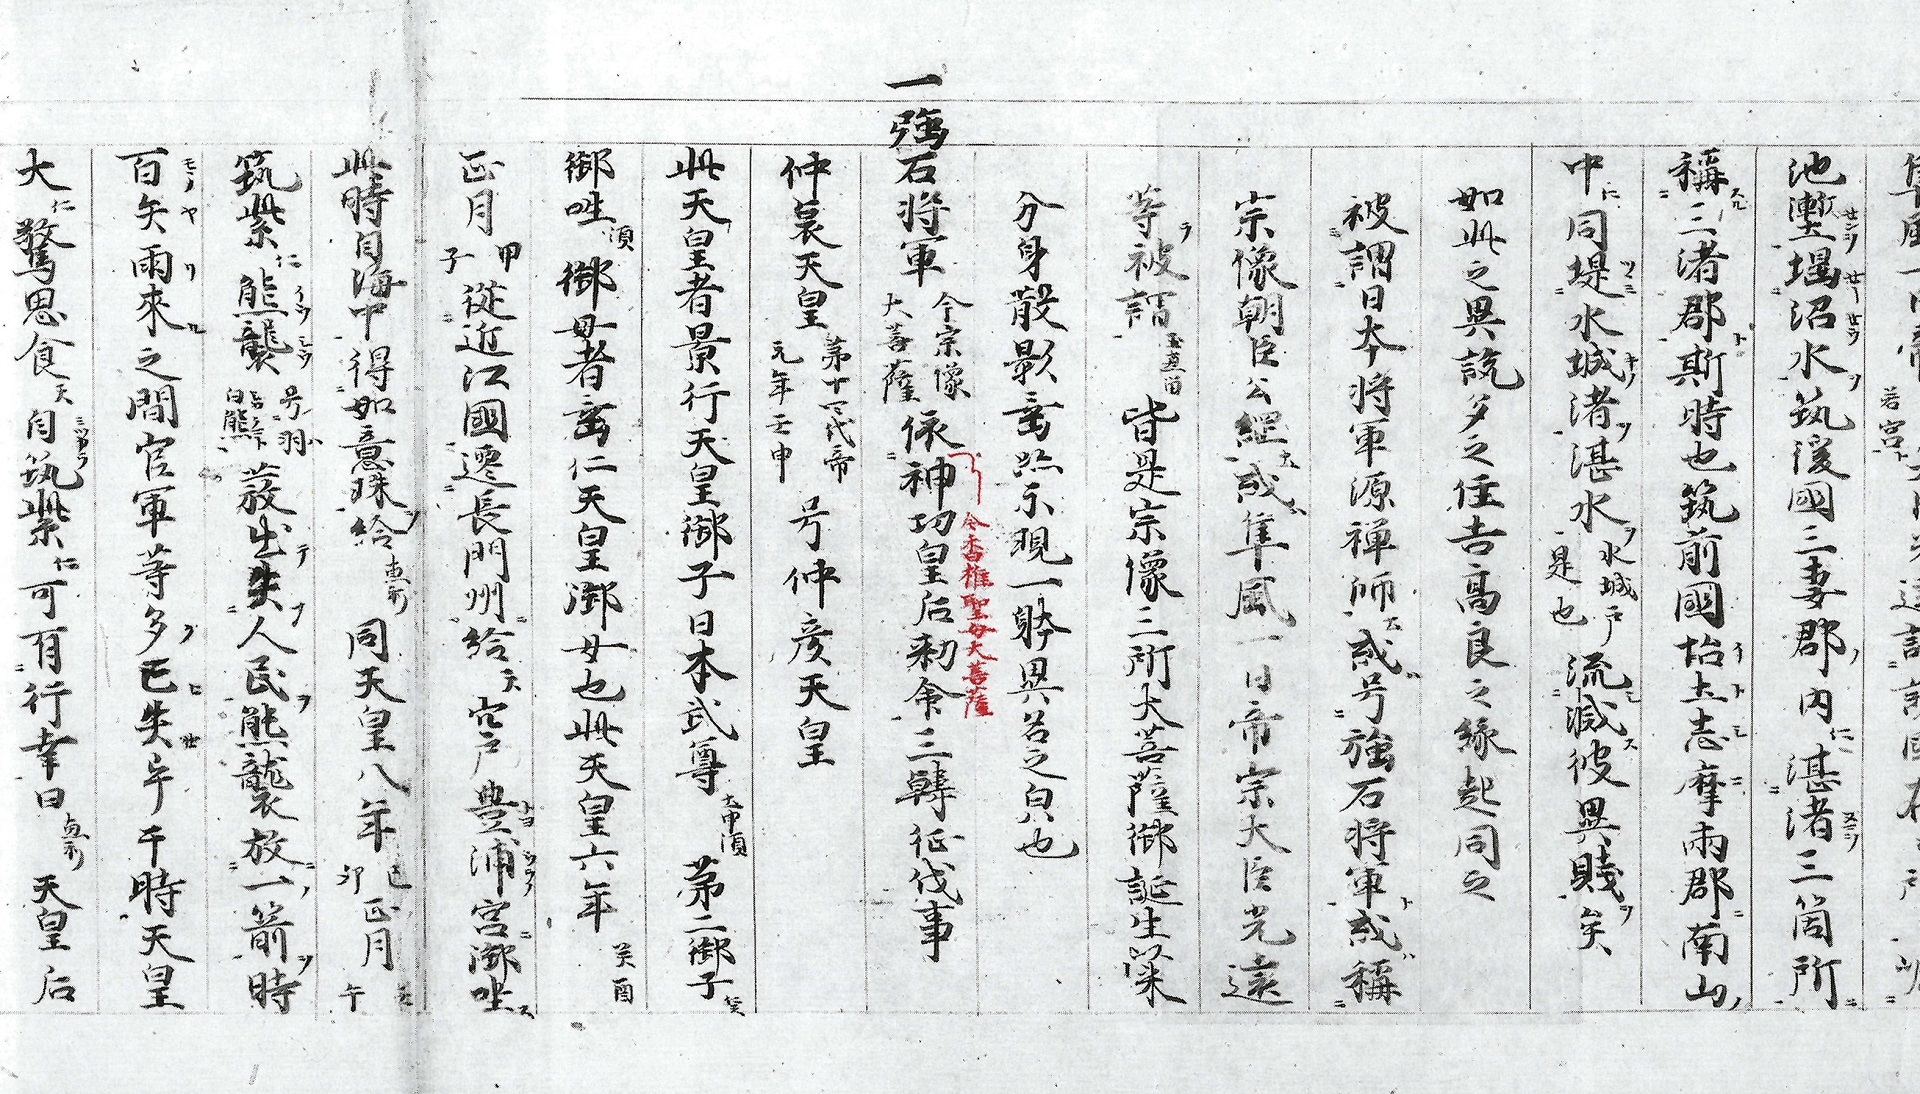 池塹堰沼水筑後國三妻郡内仁湛渚三箇所
稱三渚郡斯時也筑前國怡土志摩兩郡南山
中仁同堤水城渚湛水水城戸是也流滅彼異賤矣
如此之異説多之住吉高良之緣起同之
被謂日本將軍源禪師或号強石将軍或稱
宗像朝臣公継或隼風一日帝宗大臣光遠
等被謂皆是宗像三所大菩薩御誕生以来
分身散影垂迹示現一躰異名之皃也
一強石将軍今宗像大菩薩依神功皇后勅命三韓征伐事
今香椎聖母大菩薩
仲哀天皇第十四代帝元年壬申号仲彦天皇
此天皇者景行天皇御子日本武尊第二御子
御唑御母者垂仁天皇御女也此天皇六年癸酉
正月甲子從近江國遷長門州給天宍戸豊浦宮御唑
此時自海中得如意珠給同天皇八年己卯正月
筑紫仁熊襲号羽白熊發出失人民熊襲放一箭時
百矢雨來之間官軍等多已失畢于時天皇
大仁驚思食天自筑紫仁可有行幸曰天皇后